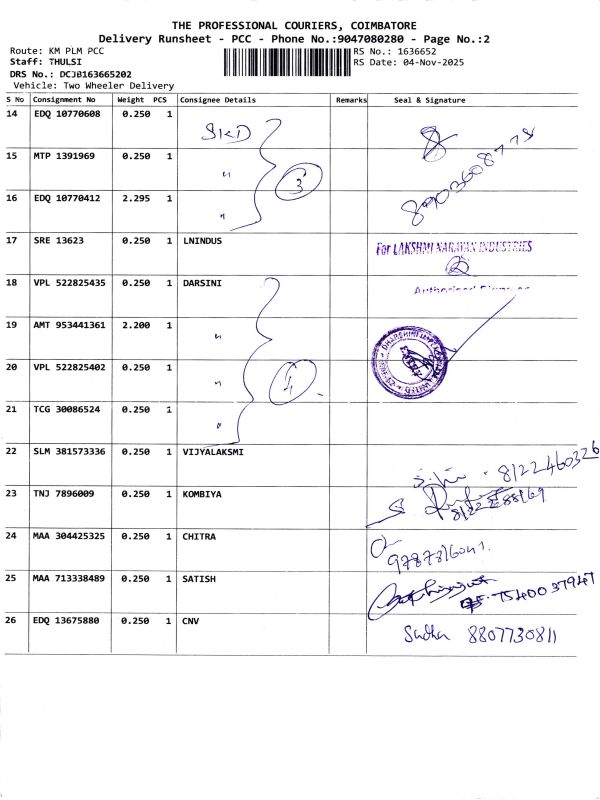 THE PROFESSIONAL COURIERS, COIMBATORE
Delivery Runsheet - PCC - Phone No.:9047080280 - Page No.:2
Route: KM PLM PCC RS No.: 1636652
Staff: THULSI RS Date: 04-Nov-2025
DRS No.: DCJB163665202
Vehicle: Two Wheeler Delivery
S No Consignment No Weight PCS Consignee Details Remarks Seal & Signature
14 EDQ 10770608 0.250 1 SKD
15 MTP 1391969 0.250 1 " 3
16 EDQ 10770412 2.295 1 "
17 SRE 13623 0.250 1 LNINDUS For LAKSHMI NARAYAN INDUSTRIES
18 VPL 522825435 0.250 1 DARSINI
19 AMT 953441361 2.200 1 "
20 VPL 522825402 0.250 1 " 4
21 TCG 30086524 0.250 1 "
22 SLM 381573336 0.250 1 VIJYALAKSMI 8122460326
23 TNJ 7896009 0.250 1 KOMBIYA
24 MAA 304425325 0.250 1 CHITRA 9787816041.
25 MAA 713338489 0.250 1 SATISH 7540037947
26 EDQ 13675880 0.250 1 CNV Sudha 8807730811